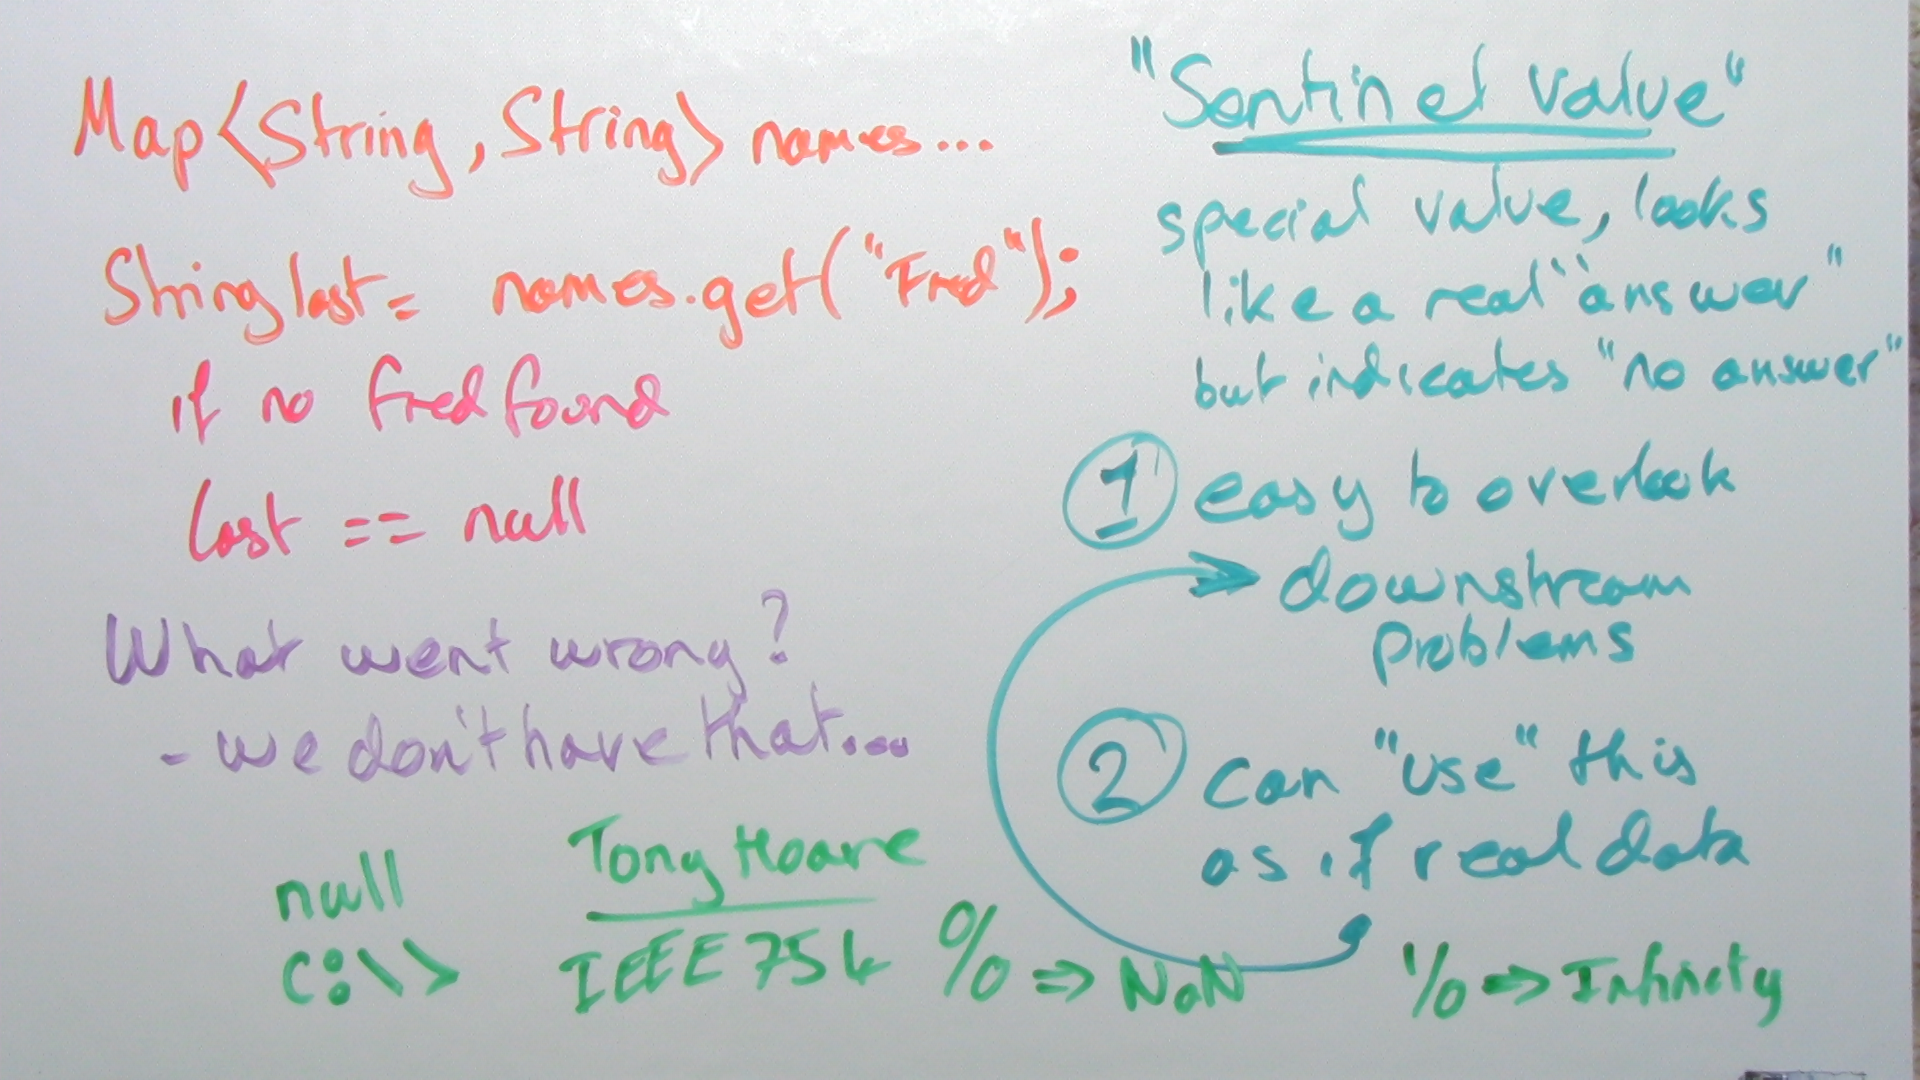 Map<String, String> names...
String last = names.get("Fred");
if no Fred found
last == null
What went wrong?
- we don't have that...
null
C:\>
Tony Hoare
IEEE 754 0/0 => NaN 1/0 => Infinity
"Sentinel value"
special value, looks
like a real "answer"
but indicates "no answer"
1 easy to overlook
downstream
problems
2 can "use" this
as if real data